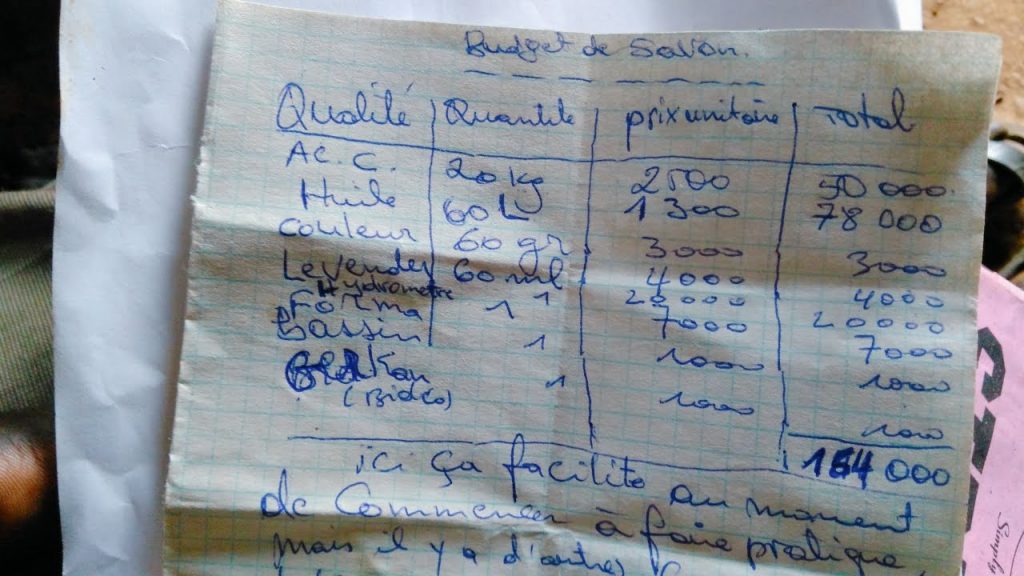 Budget de Savon.
Qualité Quantité prix unitaire Total
AC. C. 20 kg 2500 50 000
Huile 60 L 1 300 78 000
Couleur 60 gr 3000 3000
Levender 60 ml 4000 4000
Hydrometre 1 20000 20000
Forma 1 7000 7000
Bassin 1 1000 1000
1 1000 1000
(Bidéo)
164 000
ici ça facilite au moment
de Commencer à faire pratique,
mais il y a d'autres
Simplify